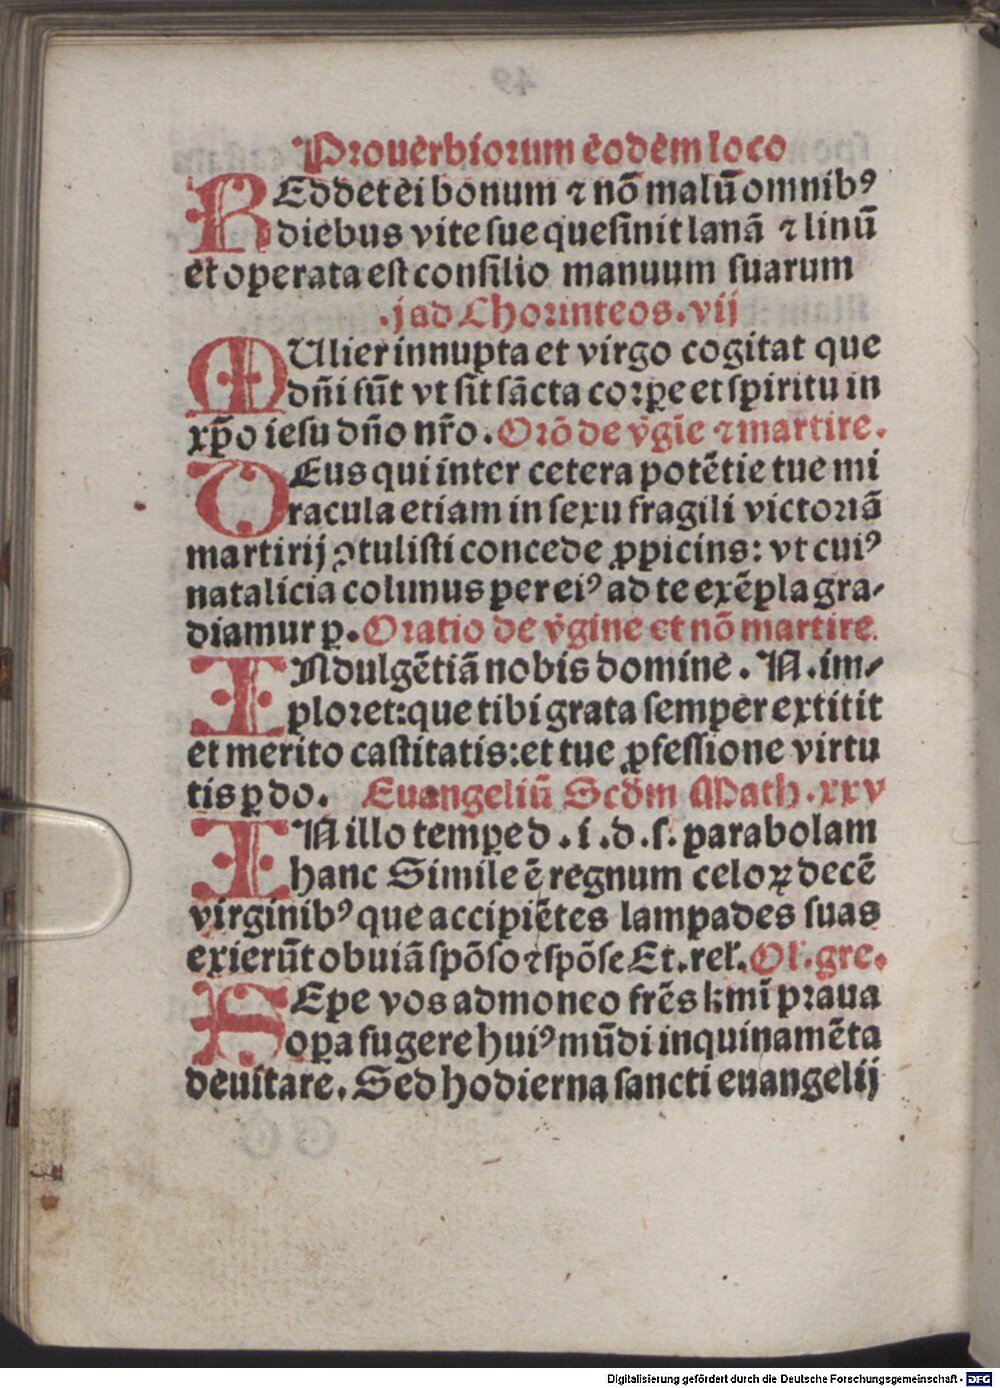 Prouerbiorum eodem loco
REddet ei bonum ⁊ nō malū omnibꝰ
diebus vite sue quesinit lanā ⁊ linū
et operata est consilio manuum suarum
.j ad Chorinteos. vij
MUlier innupta et virgo cogitat que
dn̄i sūt vt sit sācta corꝑe et spiritu in
xp̄o iesu dn̄o nr̄o. Orō de v̓gīe ⁊ martire.
DEus qui inter cetera potētie tue mi
racula etiam in sexu fragili victoriā
martirij ꝯtulisti concede ꝓpicins: vt cuiꝰ
natalicia colimus per eiꝰ ad te exēpla gra-
diamur ꝑ. Oratio de v̓gine et nō martire.
INdulgētiā nobis domine. N. im-
ploret: que tibi grata semper extitit
et merito castitatis: et tue ꝓfessione virtu
tis ꝑ do. Euangeliū Scd̄m Math. xxv
IN illo temꝑe d. i. d. s. parabolam
hanc Simile ē regnum celoꝝ decē
virginibꝰ que accipiētes lampades suas
exierūt obuiā spōso ⁊ spōse Et. rel̓. Ol̓. gre.
SEpe vos admoneo frēs kmī praua
oꝑa fugere huiꝰ mūdi inquinamēta
deuitare. Sed hodierna sancti euangelij
Digitalisierung gefördert durch die Deutsche Forschungsgemeinschaft - DFG